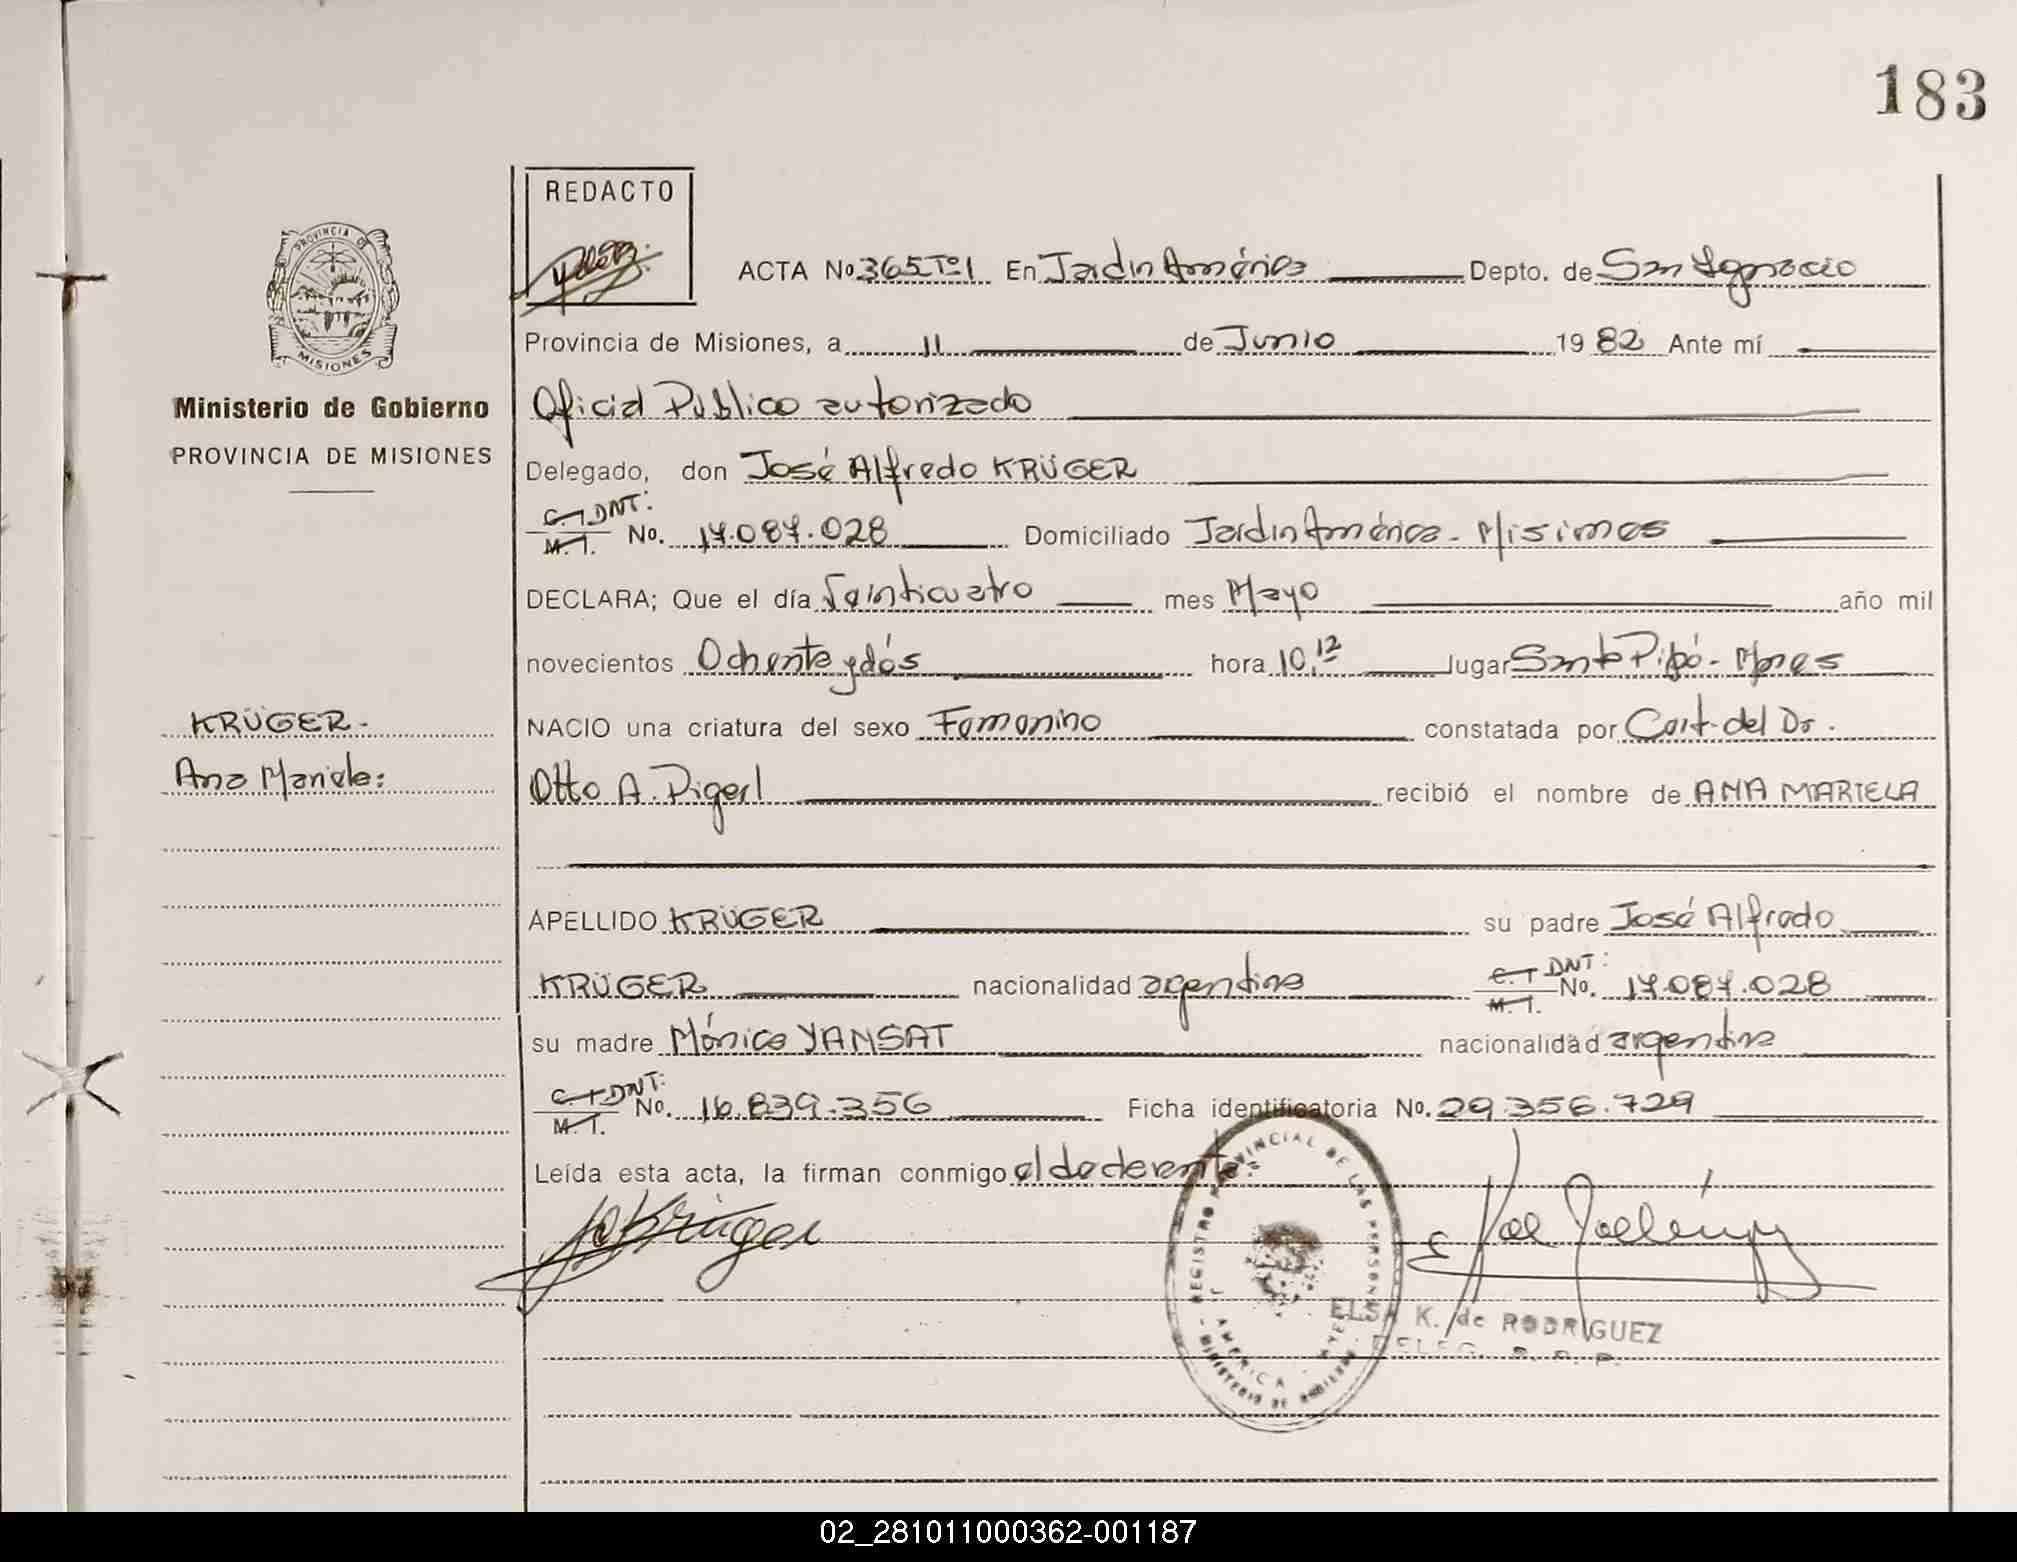 183
REDACTO
PROVINCIA DE
MISIONES
ACTA No. 365 Tº 1 En Jardín América Depto. de San Ignacio
Provincia de Misiones, a 11 de Junio 1982 Ante mí
Ministerio de Gobierno
Oficial Público autorizado
PROVINCIA DE MISIONES
Delegado, don José Alfredo KRÜGER
C. I. DNI:
M. I. No. 17.087.028 Domiciliado Jardín América - Misiones
DECLARA; Que el día Veinticuatro mes Mayo año mil
novecientos Ochenta y dós hora 10,12 lugar Santo Pipó - Mnes
KRÜGER.
NACIO una criatura del sexo Femenino constatada por Cert. del Dr.
Ana Mariela:
Otto A. Digerl recibió el nombre de ANA MARIELA
APELLIDO KRÜGER su padre José Alfredo
KRÜGER nacionalidad argentina C. I DNI: M. I. No. 17.087.028
su madre Mónica YANSAT nacionalidad argentina
C. I DNI: M. I. No. 16.839.356 Ficha identificatoria No. 29.356.729
Leída esta acta, la firman conmigo el declarante:
Krüger
REGISTRO PROVINCIAL DE LAS PERSONAS
AMERICA
MINISTERIO DE GOBIERNO
ELSA K. de RODRIGUEZ
DELEG. R. P. P.
02_281011000362-001187